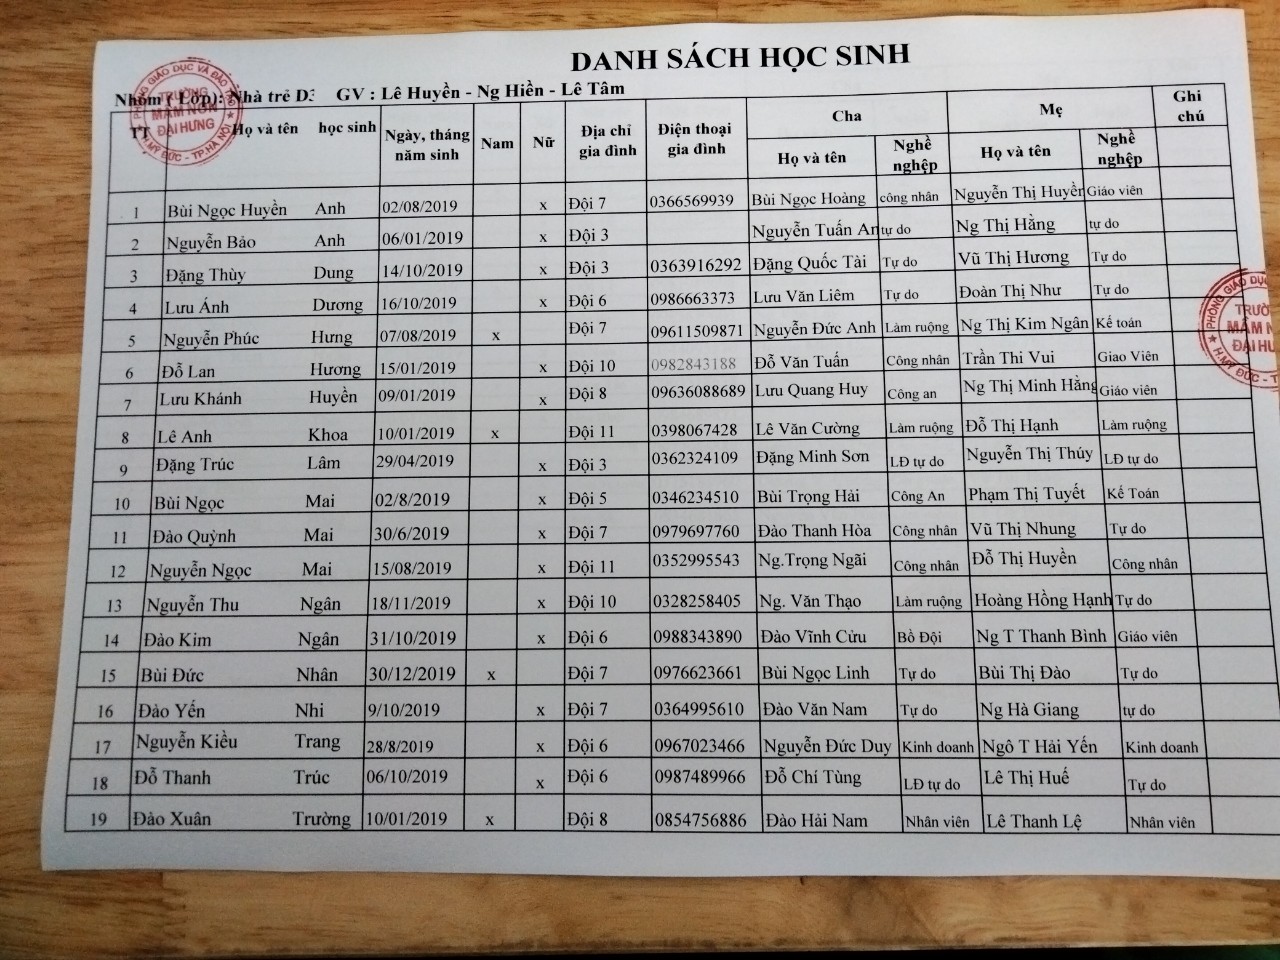 DANH SÁCH HỌC SINH
Nhóm ( Lớp): Nhà trẻ D3 GV : Lê Huyền - Ng Hiền - Lê Tâm
PHÒNG GIÁO DỤC VÀ ĐÀO
TRƯỜNG
MẦM NON
ĐẠI HƯNG
H.MỸ ĐỨC - TP.HÀ NỘI
TT Họ và tên học sinh Ngày, tháng năm sinh Nam Nữ Địa chỉ gia đình Điện thoại gia đình Cha Mẹ Ghi chú
Họ và tên Nghề nghệp Họ và tên Nghề nghệp
1 Bùi Ngọc Huyền Anh 02/08/2019 x Đội 7 0366569939 Bùi Ngọc Hoàng công nhân Nguyễn Thị Huyền Giáo viên
2 Nguyễn Bảo Anh 06/01/2019 x Đội 3 Nguyễn Tuấn An tự do Ng Thị Hằng tự do
3 Đặng Thùy Dung 14/10/2019 x Đội 3 0363916292 Đặng Quốc Tài Tự do Vũ Thị Hương Tự do
4 Lưu Ánh Dương 16/10/2019 x Đội 6 0986663373 Lưu Văn Liêm Tự do Đoàn Thị Như Tự do
5 Nguyễn Phúc Hưng 07/08/2019 x Đội 7 09611509871 Nguyễn Đức Anh Làm ruộng Ng Thị Kim Ngân Kế toán
6 Đỗ Lan Hương 15/01/2019 x Đội 10 0982843188 Đỗ Văn Tuấn Công nhân Trần Thi Vui Giao Viên
7 Lưu Khánh Huyền 09/01/2019 x Đội 8 09636088689 Lưu Quang Huy Công an Ng Thị Minh Hằng Giáo viên
8 Lê Anh Khoa 10/01/2019 x Đội 11 0398067428 Lê Văn Cường Làm ruộng Đỗ Thị Hạnh Làm ruộng
9 Đặng Trúc Lâm 29/04/2019 x Đội 3 0362324109 Đặng Minh Sơn LĐ tự do Nguyễn Thị Thúy LĐ tự do
10 Bùi Ngọc Mai 02/8/2019 x Đội 5 0346234510 Bùi Trọng Hải Công An Phạm Thị Tuyết Kế Toán
11 Đào Quỳnh Mai 30/6/2019 x Đội 7 0979697760 Đào Thanh Hòa Công nhân Vũ Thị Nhung Tự do
12 Nguyễn Ngọc Mai 15/08/2019 x Đội 11 0352995543 Ng.Trọng Ngãi Công nhân Đỗ Thị Huyền Công nhân
13 Nguyễn Thu Ngân 18/11/2019 x Đội 10 0328258405 Ng. Văn Thạo Làm ruộng Hoàng Hồng Hạnh Tự do
14 Đào Kim Ngân 31/10/2019 x Đội 6 0988343890 Đào Vĩnh Cửu Bồ Đội Ng T Thanh Bình Giáo viên
15 Bùi Đức Nhân 30/12/2019 x Đội 7 0976623661 Bùi Ngọc Linh Tự do Bùi Thị Đào Tự do
16 Đào Yến Nhi 9/10/2019 x Đội 7 0364995610 Đào Văn Nam Tự do Ng Hà Giang tự do
17 Nguyễn Kiều Trang 28/8/2019 x Đội 6 0967023466 Nguyễn Đức Duy Kinh doanh Ngô T Hải Yến Kinh doanh
18 Đỗ Thanh Trúc 06/10/2019 x Đội 6 0987489966 Đỗ Chí Tùng LĐ tự do Lê Thị Huế Tự do
19 Đào Xuân Trường 10/01/2019 x Đội 8 0854756886 Đào Hải Nam Nhân viên Lê Thanh Lệ Nhân viên